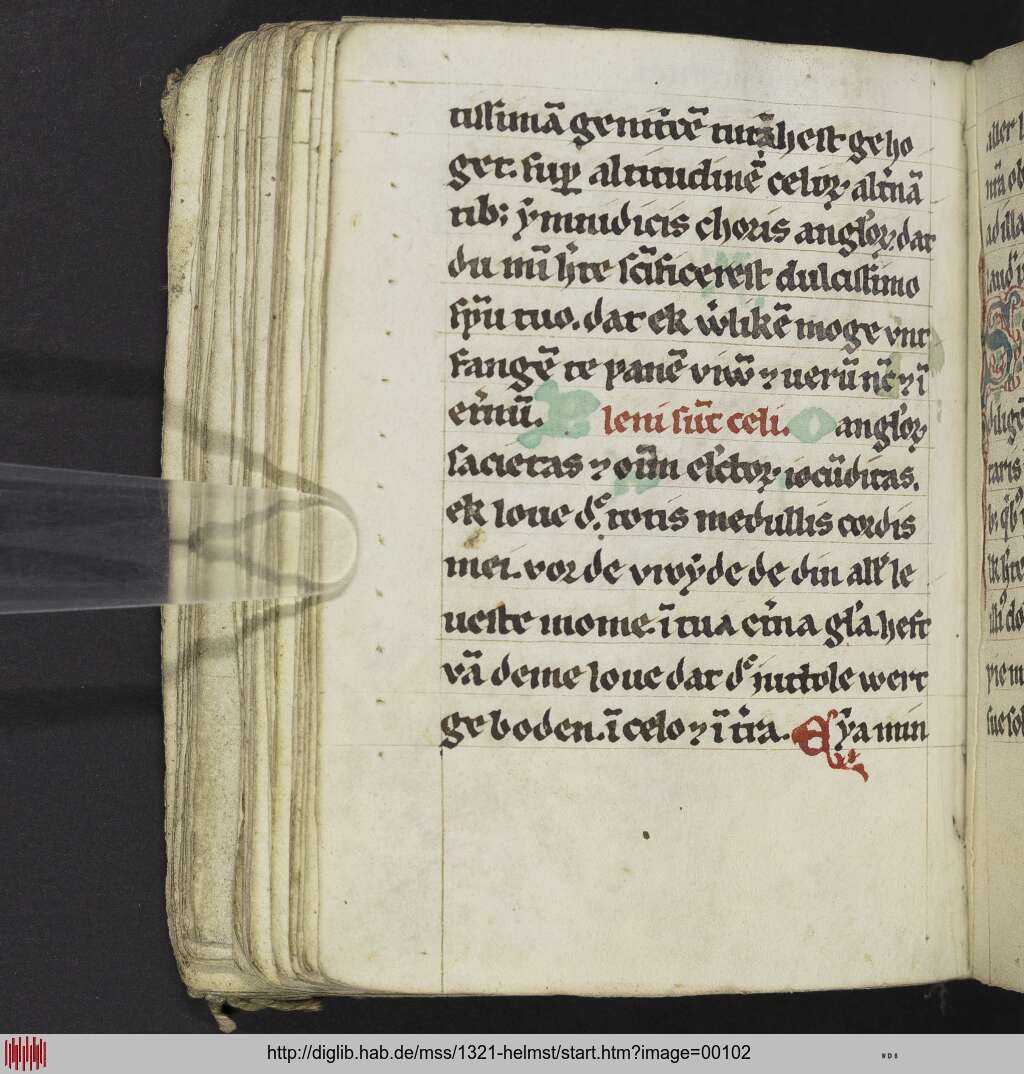 tissimā genitͥcē tuā hest geho
get. sup̄ altitudinē celoꝝ altͥnā
tib; ẏmnidicis choris anglͦoꝝ dat
du mī h̓te scīficerest dulcissimo
spū tuo. dat ek w̓likē moge vnt
fangē te panē vivū ⁊ uerū nc̄ ⁊ ī
et̓nū. Pleni sūt celi. O anglͦoꝝ
sacietas ⁊ oīm elc̓toꝝ iocūditas.
ek loue dͤ. totis medullis cordis
mei. vor de vroẏde de din all̓ le
ueste mome. ī tua et̓na gl̓a. heft
vā deme loue dat dͤ iuttole wert
geboden. ī celo ⁊ ī t̓ra. Eẏa min
aller
ad illa
http://diglib.hab.de/mss/1321-helmst/start.htm?image=00102